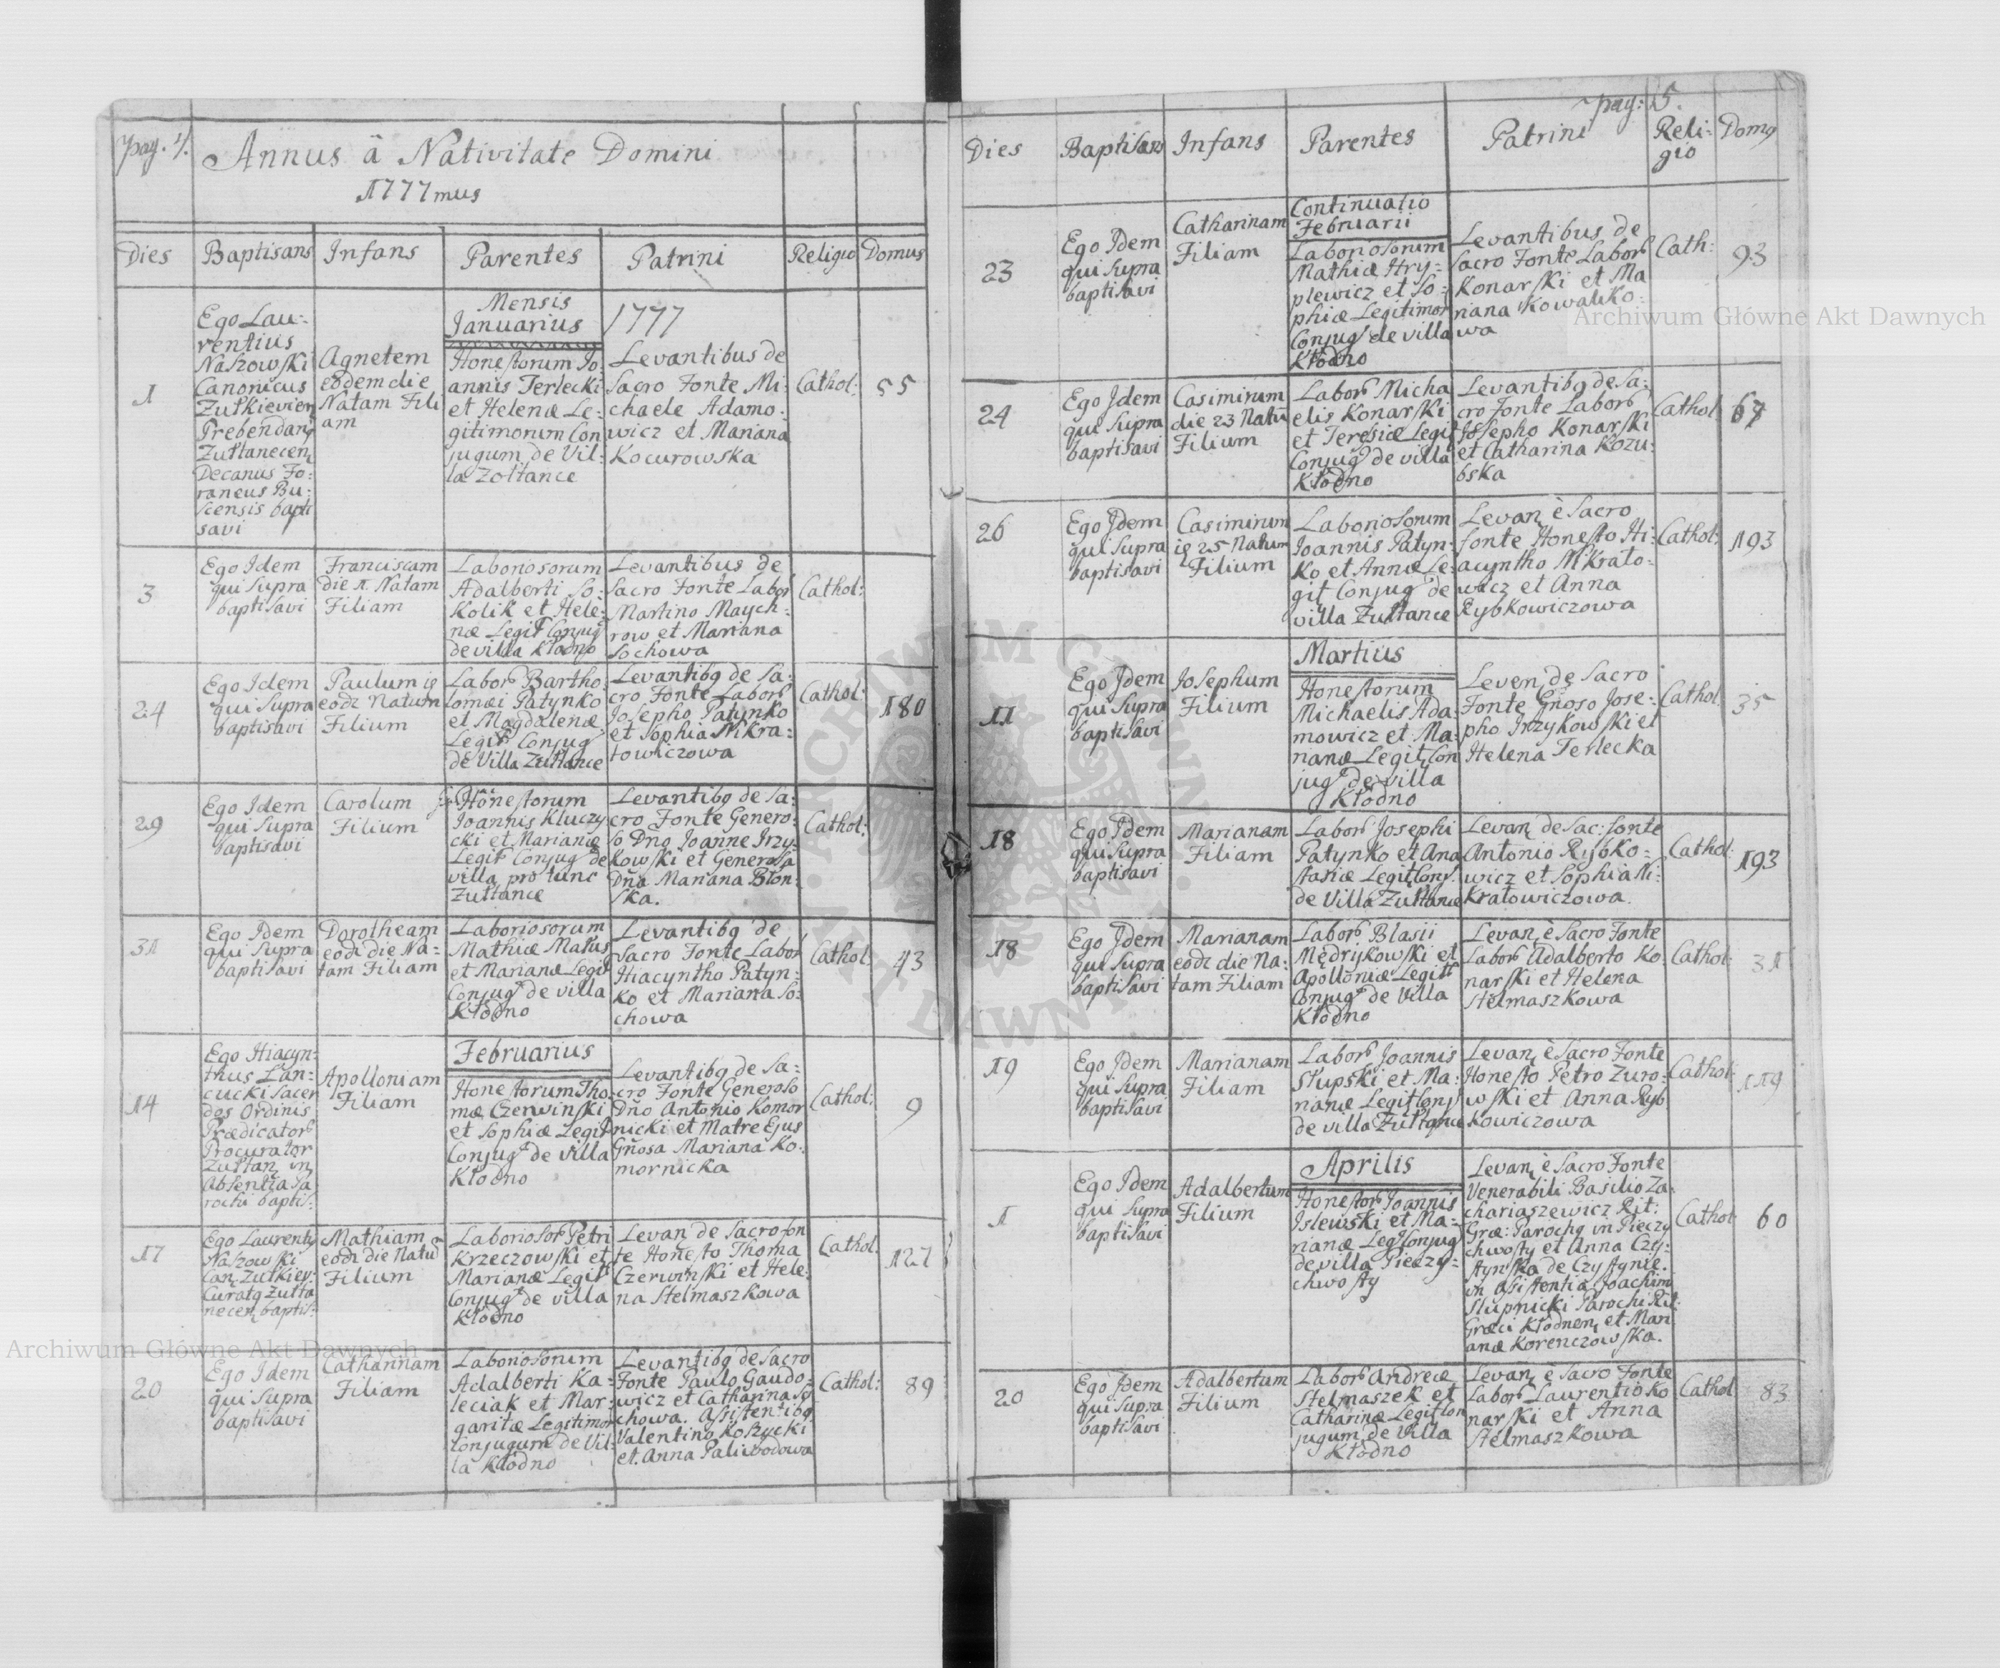 pag. 4.
Annus â Nativitate Domini
1777mus
Dies Baptisans Infans Parentes Patrini Religio Domus
Mensis
Januarius 1777
1
Ego Lau-
rentius
Naszowski
Canonicus
Zułkievien
Prebendarg
Zułtanecen
Decanus Fo-
raneus Bu-
scensis bapti
savi
Agnetem
eodem die
Natam Fili
am
Honestorum Jo
annis Terlecki
et Helenæ Le-
gitimorum Con
jugum de Vil-
la Zołtance
Levantibus de
Sacro Fonte Mi-
chaele Adamo-
wicz et Mariana
Kocurowska
Cathol:
55
3
Ego Idem
qui Supra
baptisavi
Franciscam
die 1. Natam
Filiam
Laboriosorum
Adalberti So-
kolik et Hele-
næ Legit Conjug
de villa Kłodno
Levantibus de
Sacro Fonte Labor
Martino Maych-
row et Mariana
Sochowa
Cathol:
24
Ego Idem
qui Supra
baptisavi
Paulum
eod: Natum
Filium
Labor Bartho-
lomæi Patynko
et Magdalenæ
Legit Conjug
de Villa Zułtance
Levantibg de Sa-
cro Fonte Labor
Josepho Patynko
et Sophia Mikra-
towiczowa
Cathol:
180
29
Ego Idem
qui Supra
baptisavi
Carolum
Filium
Honestorum
Joannis Kluczy
cki et Marianæ
Legit Conjug de
villa pro tunc
Zułtance
Levantibg de Sa-
cro Fonte Genero-
so Dno Joanne Irzy-
kowski et Generosa
Dña Mariana Błon-
ska.
Cathol:
31
Ego Idem
qui Supra
baptisavi
Dorotheam
eod: die Na-
tam Filiam
Laboriosorum
Mathiæ Matus
et Marianæ Legit
Conjug de villa
Kłodno
Levantibg de
Sacro Fonte Labor
Hiacyntho Patyn-
ko et Mariana So-
chowa
Cathol:
43
Februarius
14
Ego Hiacyn-
thus Lan-
cucki Sacer
dos Ordinis
Prædicator
Procurator
Zułtan in
Absentia Pa
rochi baptis:
Apolloniam
Filiam
Honestorum Tho-
mæ Czerwinski
et Sophiæ Legit
Conjug de villa
Kłodno
Levantibg de Sa-
cro Fonte Generoso
Dño Antonio Komor
nicki et Matre Ejus
Gñosa Mariana Ko-
mornicka
Cathol:
9
17
Ego Laurenty
Naszowski
Can: Zułkiev:
Curatg Zułta
necen baptis:
Mathiam
eod: die Natu
Filium
Laborioso Petri
Krzeczowski et
Marianæ Legit
Conjug de villa
Kłodno
Levan de Sacro fon
te Honesto Thoma
Czerwinski et Hele-
na Stelmaszkowa
Cathol.
127
20
Ego Idem
qui Supra
baptisavi
Catharinam
Filiam
Laboriosorum
Adalberti Ka-
leciak et Mar-
garitæ Legitimor
Conjugum de Vil-
la Kłodno
Levantibg de Sacro
Fonte Paulo Gaudo-
wicz et Catharina So
chowa. Assistentibg
Valentino Koszycki
et Anna Paliwodowa
Cathol:
89
pag: 5.
Dies Baptisans Infans Parentes Patrini Reli-
gio Domg
Continuatio
Februarii
23
Ego Idem
qui Supra
baptisavi
Catharinam
Filiam
Laboriosorum
Mathiæ Hry-
plewicz et So-
phiæ Legitimor
Conjug de villa
Kłodno
Levantibus de
Sacro Fonte Labor
Konarski et Ma
riana Kowalko-
wa
Cath:
93
24
Ego Idem
qui Supra
baptisavi
Casimirum
die 23 Natu
Filium
Labor Micha
elis Konarski
et Teresiæ Legit
Conjug de villa
Kłodno
Levantibg de Sa-
cro Fonte Labor
Josepho Konarski
et Catharina Kozu-
bska
Cathol:
67
26
Ego Idem
qui Supra
baptisavi
Casimirum
25 Natum
Filium
Laboriosorum
Joannis Patyn-
ko et Annæ Le-
git Conjug de
villa Zułtance
Levan è Sacro
fonte Honesto Hi-
acyntho Mikrato-
wicz et Anna
Rybkowiczowa
Cathol:
193
Martius
11
Ego Idem
qui Supra
baptisavi
Josephum
Filium
Honestorum
Michaelis Ada-
mowicz et Ma-
rianæ Legit Con
jug de villa
Kłodno
Leven de Sacro
Fonte Gñoso Jose-
pho Irzykowski et
Helena Terlecka
Cathol:
35
18
Ego Idem
qui Supra
baptisavi
Marianam
Filiam
Labor Josephi
Patynko et Ana
stasiæ Legit Conj.
de Villa Zułtance
Levan de Sac: fonte
Antonio Rybko-
wicz et Sophia Mi-
kratowiczowa.
Cathol:
193
18
Ego Idem
qui Supra
baptisavi
Marianam
eod: die Na-
tam Filiam
Labor. Blasii
Mędrykowski et
Apolloniæ Legit
Conjug de Villa
Kłodno
Levan è Sacro Fonte
Labor Adalberto Ko-
narski et Helena
Stelmaszkowa
Cathol:
31
19
Ego Idem
qui Supra
baptisavi
Marianam
Filiam
Labor Joannis
Słupski et Ma-
rianæ Legit Conj
de villa Zułtance
Levan è Sacro Fonte
Honesto Petro Zuro-
wski et Anna Ryb
kowiczowa
Cathol:
119
Aprilis
1
Ego Idem
qui Supra
baptisavi
Adalbertum
Filium
Honestor Joannis
Islewski et Ma-
rianæ Leg Conjug
de villa Pieczy-
chwosty
Levan è Sacro Fonte
Venerabili Basilio Za-
chariaszewicz Rit:
Græ: Parochg in Pieczy
chwosty et Anna Czy-
stynska de Czystynie.
in Assistentia Joachim
Slupnicki Parochi Rit:
Græci Kłodnen et Mari
anæ Korenczowska.
Cathol
60
20
Ego Idem
qui Supra
baptisavi
Adalbertum
Filium
Labor Andreæ
Stelmaszek et
Catharinæ Legit Con
jugum de Villa
Kłodno
Levan è Sacro Fonte
Labor Laurentio Ko
narski et Anna
Stelmaszkowa
Cathol
83
Archiwum Główne Akt Dawnych
Archiwum Główne Akt Dawnych
ARCHIWUM GŁÓWNE AKT DAWNYCH